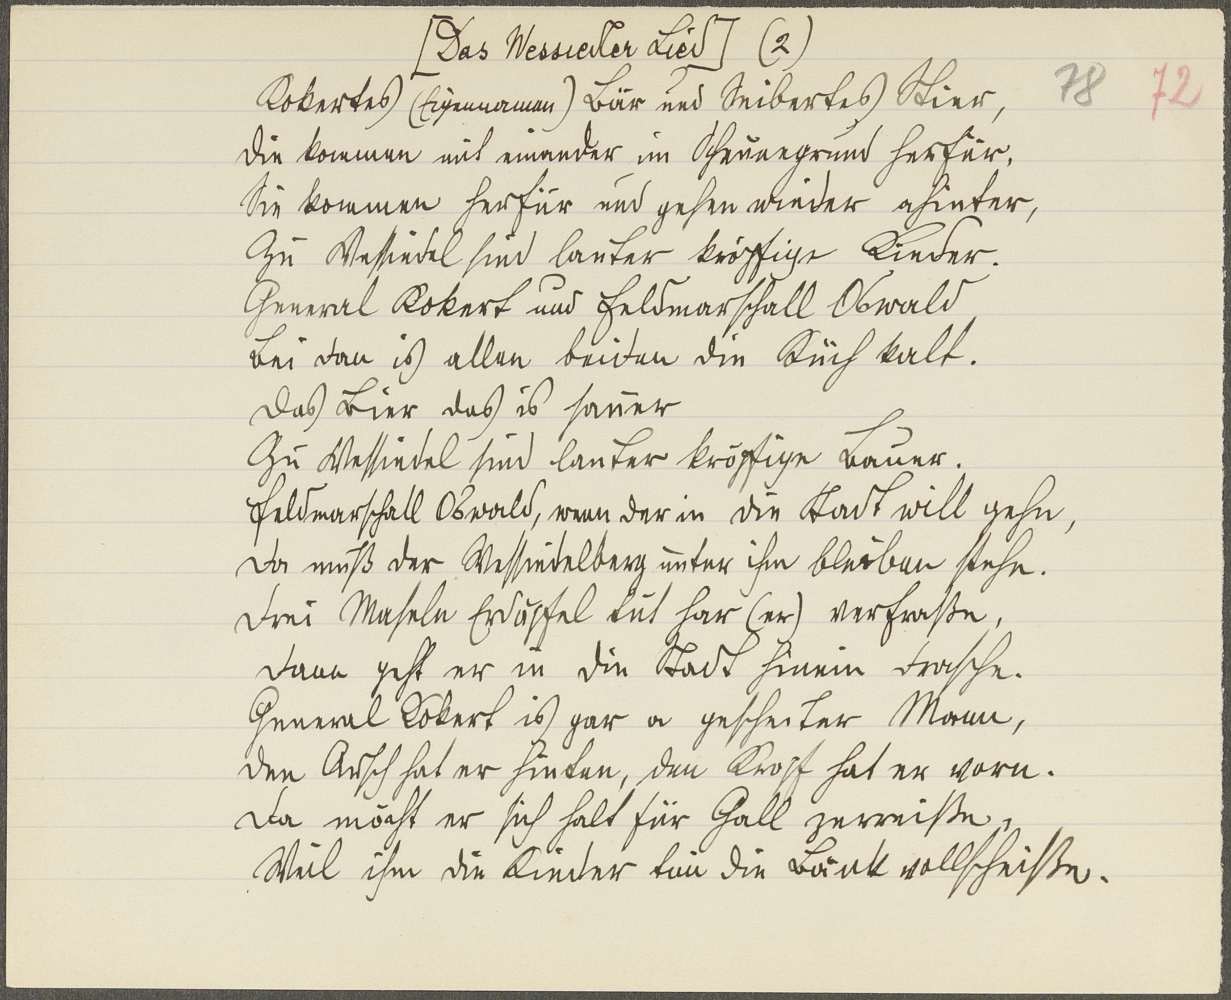 [Das Wessiedler Lied] (2)
78 72
Kokertes (Eigennamen) Bär und Seibertes Stier,
die kommen mit einander im Scheunegrund herfür.
Sie kommen herfür und gehen wieder ahinter,
Zu Wessiedel sind lauter kröpfige Kinder.
General Kokert und Feldmarschall Oswald
bei dan is allen beiden die Küch kalt.
Das Bier das is sauer
Zu Wessiedel sind lauter kröpfige Bauer.
Feldmarschall Oswald, wenn der in die Stadt will gehn,
da muß der Wessiedelberg unter ihm bleiben stehn.
Drei Maseln Erdäpfel tut har (er) verfraße,
dann geht er in die Stadt hinein drasche.
General Kokert is gar a gescheiter Mann,
den Arsch hat er hinten, den Kropf hat er vorn.
Da möcht er sich halt für Gall zerreiße,
Weil ihm die Kinder tün die Bänk vollscheiße.